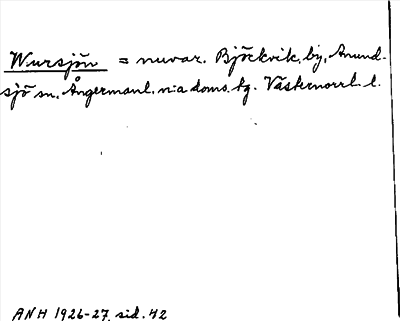 Wursjön = nuvar. Björkvik, by, Anund-
sjö sn, Ångermanl. n:a doms. tg. Västernorrl. l.
ANH 1926-27, sid. 42